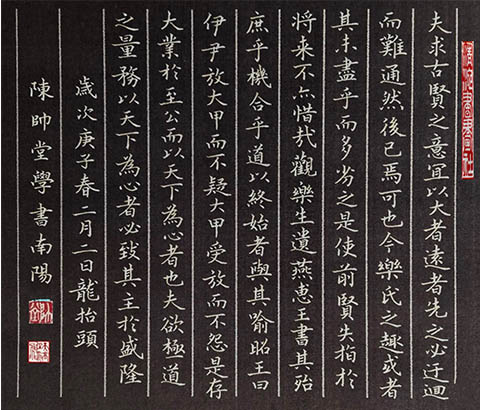 夫求古賢之意宜以大者遠者先之必迂迴
而難通然後已焉可也今樂氏之趣或者
其未盡乎而多劣之是使前賢失指於
将來不亦惜哉觀樂生遺燕惠王書其殆
庶乎機合乎道以終始者與其喻昭王曰
伊尹放大甲而不疑大甲受放而不怨是存
大業於至公而以天下為心者也夫欲極道
之量務以天下為心者必致其主於盛隆
歲次庚子春二月二日龍抬頭
陳帥堂學書南陽